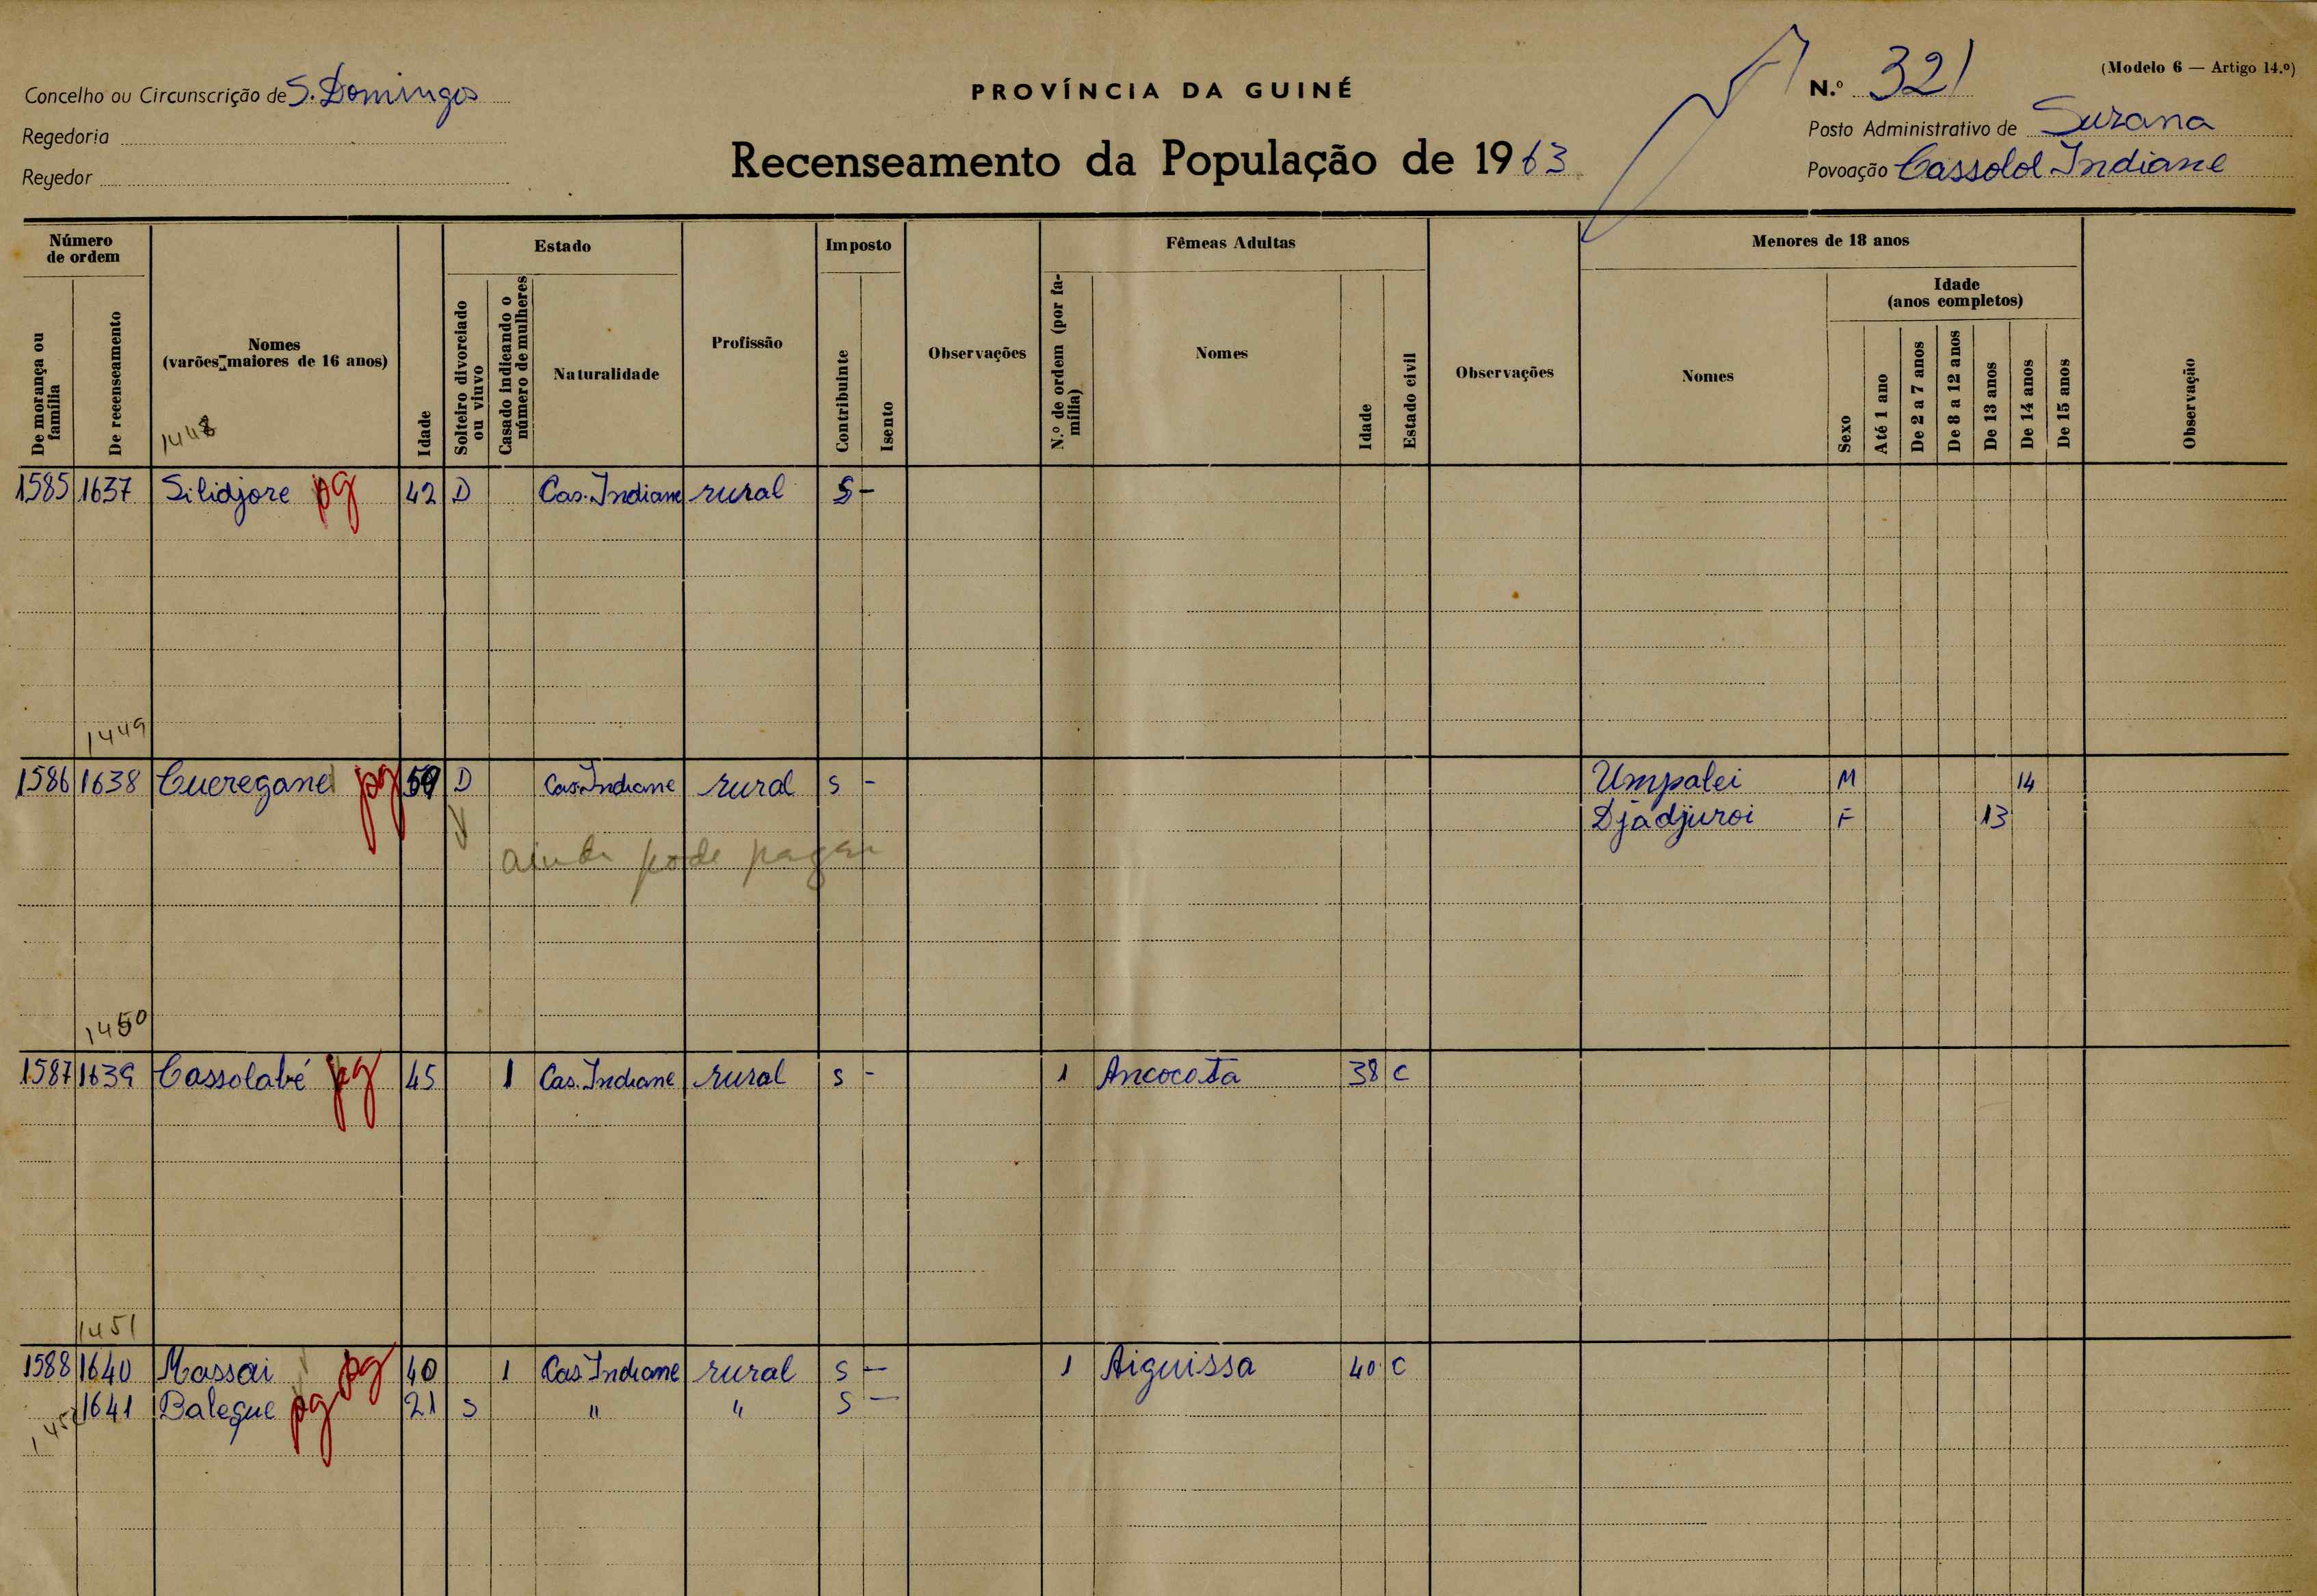 (Modelo 6 — Artigo 14.º)
Concelho ou Circunscrição de S. Domingos
PROVÍNCIA DA GUINÉ
N.º 321
Regedoria
Posto Administrativo de Suzana
Regedor
Recenseamento da População de 1963
Povoação Cassolol Indiane
Número de ordem
De morança ou família
De recenseamento
Nomes
(varões maiores de 16 anos)
1448
Idade
Estado
Solteiro divorciado ou viuvo
Casado indicando o número de mulheres
Naturalidade
Profissão
Imposto
Contribuinte
Isento
Observações
Fêmeas Adultas
N.º de ordem (por família)
Nomes
Idade
Estado civil
Observações
Menores de 18 anos
Nomes
Sexo
Idade
(anos completos)
Até 1 ano
De 2 a 7 anos
De 8 a 12 anos
De 13 anos
De 14 anos
De 15 anos
Observação
1585 1637 Silidjore pg 42 D Cas. Indiane rural S -
1449
1586 1638 Cueregane pg D Cas. Indiane rural s - Umpalei M 14
Djadjuroi F 13
ainda pode pagar
1450
1587 1639 Cassolabé pg 45 1 Cas. Indiane rural s - 1 Ancocota 38 C
1451
1588 1640 Massai pg 40 1 Cas. Indiane rural s - 1 Aiguissa 40 C
1452 1641 Balegue pg 21 S " " S -